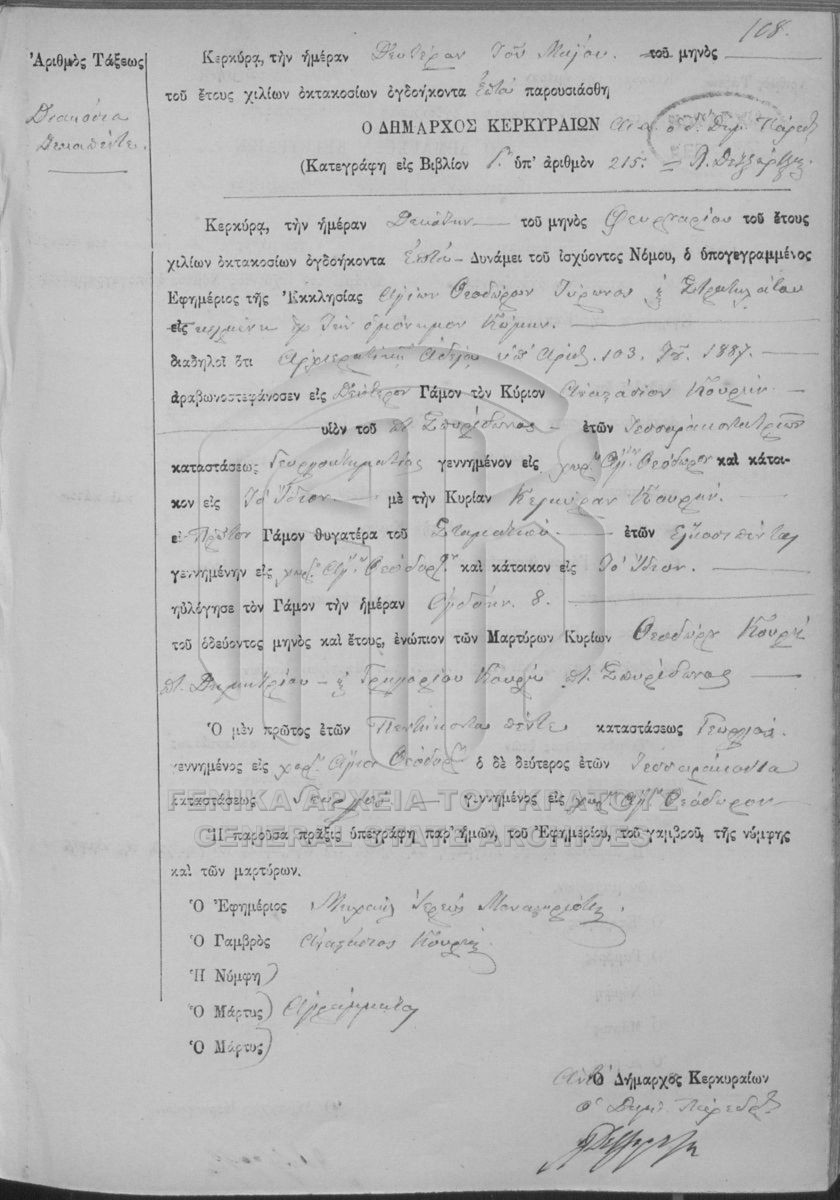 108.
Ἀριθμὸς Τάξεως
Διακόσια
Δεκαπέντε.
Κερκύρᾳ, τὴν ἡμέραν Δευτέραν τοῦ Μαΐου τοῦ μηνὸς
τοῦ ἔτους χιλίων ὀκτακοσίων ὀγδοήκοντα ἑπτὰ παρουσιάσθη
Ὁ ΔΗΜΑΡΧΟΣ ΚΕΡΚΥΡΑΙΩΝ ὁ Δημ. Πάρεδ
(Κατεγράφη εἰς Βιβλίον Γ. ὑπ' ἀριθμὸν 215.
Κερκύρᾳ, τὴν ἡμέραν Δεκάτην τοῦ μηνὸς Φευρουαρίου τοῦ ἔτους
χιλίων ὀκτακοσίων ὀγδοήκοντα ἑπτὰ Δυνάμει τοῦ ἰσχύοντος Νόμου, ὁ ὑπογεγραμμένος
Ἐφημέριος τῆς Ἐκκλησίας Ἁγίων Θεοδώρων Τύρωνος & Στρατηλάτου
εἰς κειμένη τὴν ὁμόνυμον Κώμην.
διαδηλοῖ ὅτι Ἀρχιερατικῇ Ἀδείᾳ ὑπ' Ἀριθ. 103. τοῦ 1887.
ἀραβωνοστεφάνοσεν εἰς Δεύτερον Γάμον τὸν Κύριον Ἀναστάσιον Κουρκῆν
υἱὸν τοῦ πτ Σπυρίδωνος ἐτῶν Τεσσαράκοντατριῶν
καταστάσεως Γεωργοκτηματίας γεννημένον εἰς χωρ. Ἁγ. Θεόδωρον καὶ κάτοι-
κον εἰς Τὸ Ἴδιον. μὲ τὴν Κυρίαν Κερκύραν Κουρκῆ.
εἰ Πρῶτον Γάμον θυγατέρα τοῦ Σταματίου ἐτῶν Εἴκοσιπέντε
γεννημένην εἰς χωρ. Ἁγ. Θεόδωρ. καὶ κάτοικον εἰς Τὸ Ἴδιον.
ηὐλόγησε τὸν Γάμον τὴν ἡμέραν Ὀγδόην. 8.
τοῦ ὁδεύοντος μηνὸς καὶ ἔτους, ἐνώπιον τῶν Μαρτύρων Κυρίων Θεοδώρου Κουρκῆ
πτ. Δημητρίου & Γρηγορίου Κουρκῆ πτ. Σπυρίδωνος
Ὁ μὲν πρῶτος ἐτῶν Πεντήκοντα πέντε καταστάσεως Γεωργὸς.
γεννημένος εἰς χωρ. Ἅγιον Θεόδωρ. ὁ δὲ δεύτερος ἐτῶν Τεσσαράκοντα
καταστάσεως Γεωργὸς γεννημένος εἰς χωρ. Ἁγ. Θεόδωρον
ΓΕΝΙΚΑ ΑΡΧΕΙΑ ΤΟΥ ΚΡΑΤΟΥΣ
GENERAL STATE ARCHIVES
Ἡ παροῦσα πρᾶξις ὑπεγράφη παρ' ἡμῶν, τοῦ Ἐφημερίου, τοῦ γαμβροῦ, τῆς νύμφης
καὶ τῶν μαρτύρων.
Ὁ Ἐφημέριος Μιχαὴλ Ἱερεὺς
Ὁ Γαμβρὸς Ἀναστάσιος Κουρκῆς.
Ἡ Νύμφη
Ὁ Μάρτυς Ἀγράμματοι
Ὁ Μάρτυς
Ὁ Δήμαρχος Κερκυραίων
ὁ Δημ. Πάρεδ